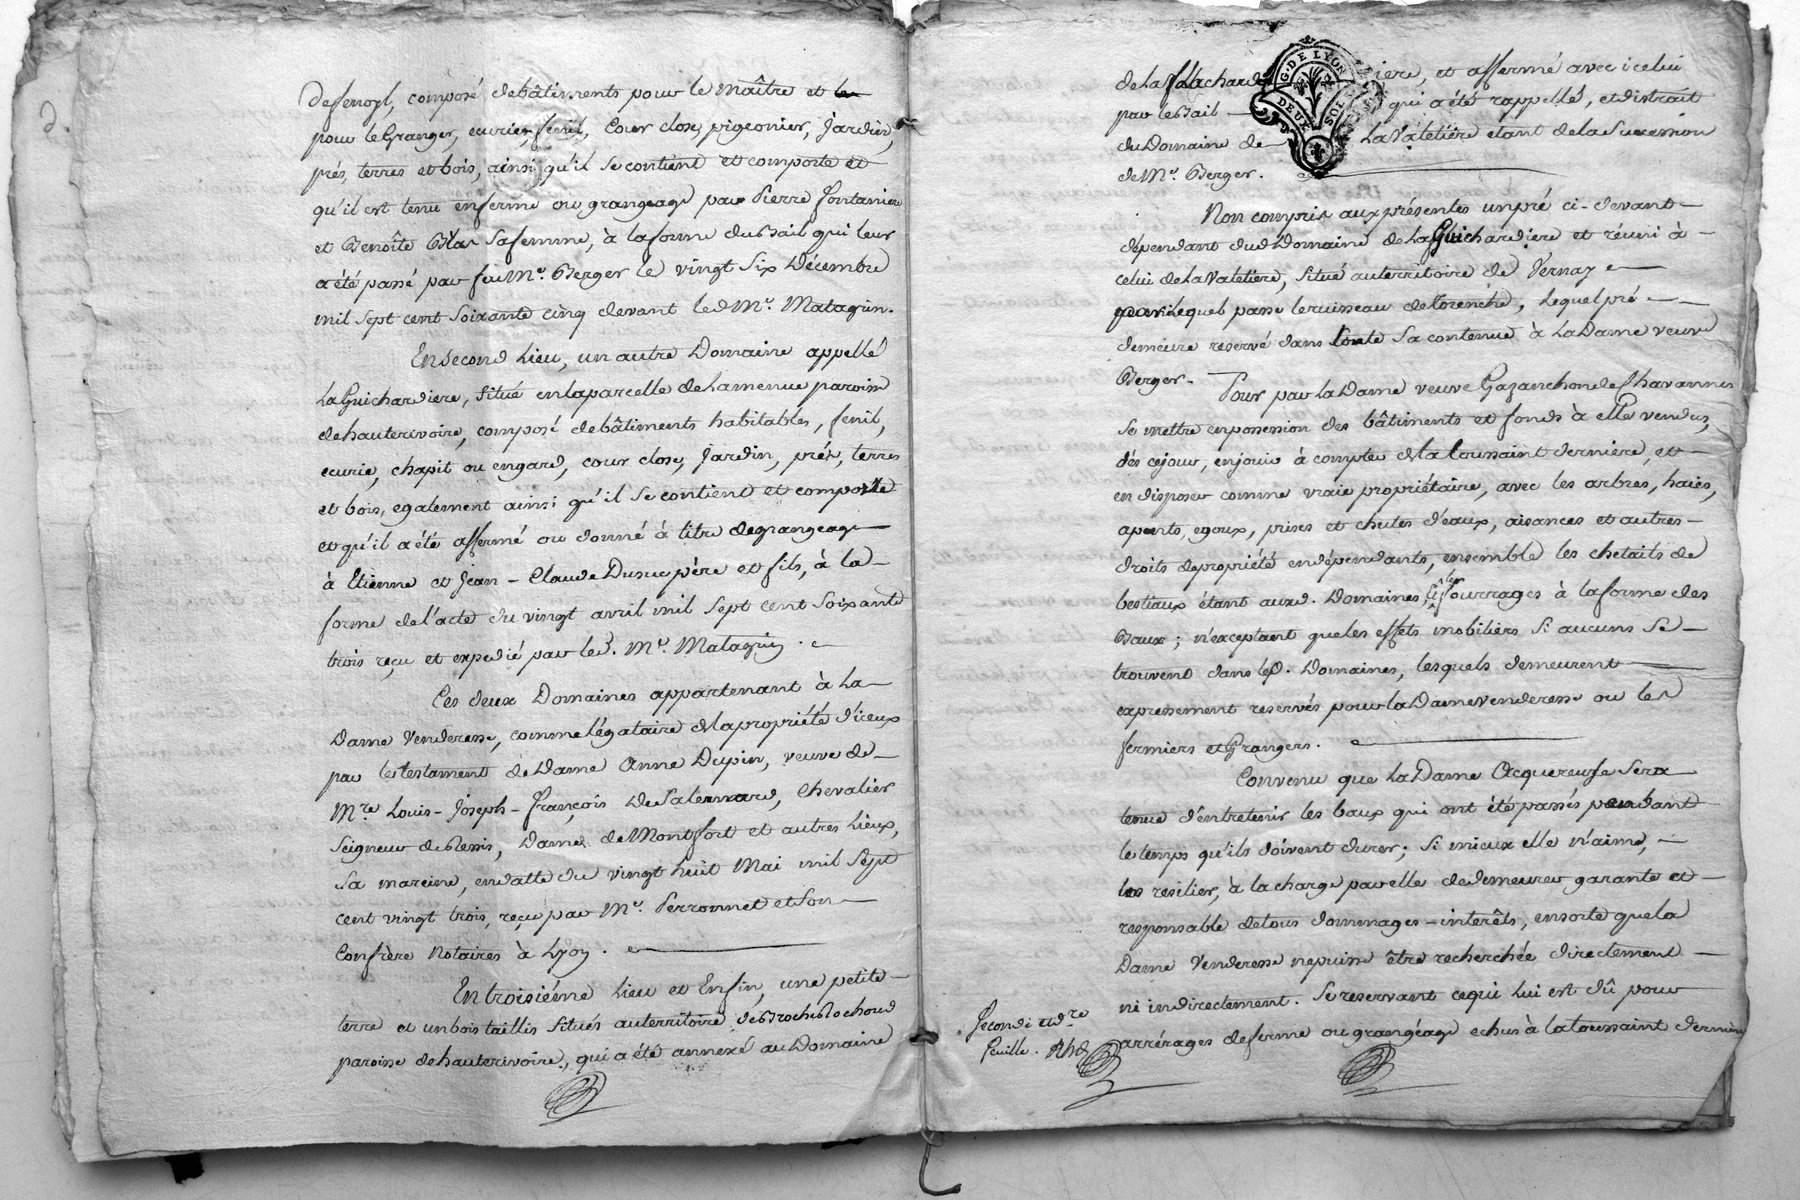 2.
defenoyl, composé debâtiments pour le Maître et le
pour le Granger, ecurie, fenil, Cour close, pigeonier, Jardin,
prés, terres et bois, ainsi qu'il se contient et comporte et
qu'il est tenu enferme ou grangeage par Pierre fontaniere
et Benoîte Blas Safemme, à laforme dubail qui leur
a été passé par feu Me. Berger le vingt Six Décembre
mil Sept cent Soixante cinq devant led. Me. Matagrin.
En Second Lieu, un autre Domaine appellé
LaGuichardiere, Situé enlaparcelle de Lamenue paroisse
dehauterivoire, composé debâtiments habitables, fenil,
ecurie, chapit ou engard, cour close, Jardin, prés, terres
et bois, egalement ainsi qu'il Se contient et comporte
et qu'il a été affermé ou donné à titre degrangeage
à Etienne et Jean - Claude Dusuc père et fils, à la -
forme de l'acte du vingt avril mil Sept cent Soixante
trois reçu et expedié par led. Me. Matagrin.
Ces deux Domaines appartenant à La -
Dame Venderesse, comme légataire delapropriété d'iceux
par letestament de Dame Anne Dupin, veuve de -
Mre Louis - Joseph - François DeSalemard, Chevalier
Seigneur deRessis, Dame de Montfort et autres Lieux,
Sa mareine, endatte du vingt huit Mai mil Sept
cent vingt trois, reçu par Me. Perronnet et Son -
Confrère Notaires à Lyon.
En troisiéme Lieu et Enfin, une petite -
terre et unbois taillis Situés auterritoire de Broche Rochoud
paroisse dehauterivoire, qui a été annexé au Domaine
G. DE LYON
DEUX SOLS
de La Guichardiere, et affermé avec icelui
par le bail qui a été rappellé, et distrait
du Domaine de La Valetiére etant de la Succession
de Me. Berger.
Non compris aux présentes un pré ci-devant -
dépendant dud. Domaine de LaGuichardiere et réuni à -
celui de LaValetiere, Situé auterritoire de Vernay
par lequel passe leruisseau deTorenche, Lequel pré -
demeure reservé dans toute Sa contenue à LaDame veuve
Berger. - Pour par LaDame veuve Gazanchon de Chavannes
Se mettre enpossession des bâtiments et fonds à elle vendus,
dés cejour, enjouir à compter de la toussaint derniere, et -
en disposer comme vraie propriétaire, avec les arbres, haies,
apents, egoux, prises et chutes d'eaux, aisances et autres -
droits depropriété endépendants, ensemble les chetails de
bestiaux étant auxd. Domaines, et les fourrages à laforme des
Baux; n'exceptant queles effets mobiliers Si aucuns Se -
trouvent dans lesd. Domaines, lesquels demeurent
expressement reservés pour la Dame venderesse ou les
fermiers et Grangers.
Convenu que La Dame Acquereuse Sera
tenue d'entretenir les baux qui ont été passés pendant
letemps qu'ils doivent durer; Si mieux elle n'aime, -
les resilier, à la charge par elle de demeurer garante et -
responsable detous dommages - interêts, ensorte quela
Dame Venderesse nepuisse être recherchée directement -
ni indirectement. Se reservant cequi Lui est dû pour
arrérages deferme ou grangéage echus à latoussaint derniere
Seconde et dre
feuille.